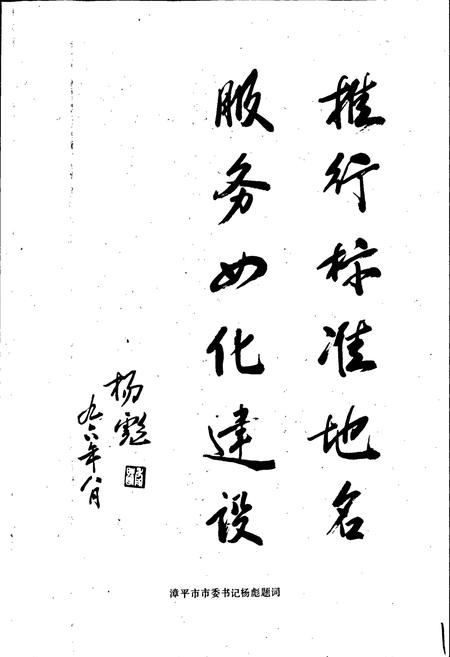 推行标准地名
服务四化建设
杨彪
九六年八月
漳平市市委书记杨彪题词